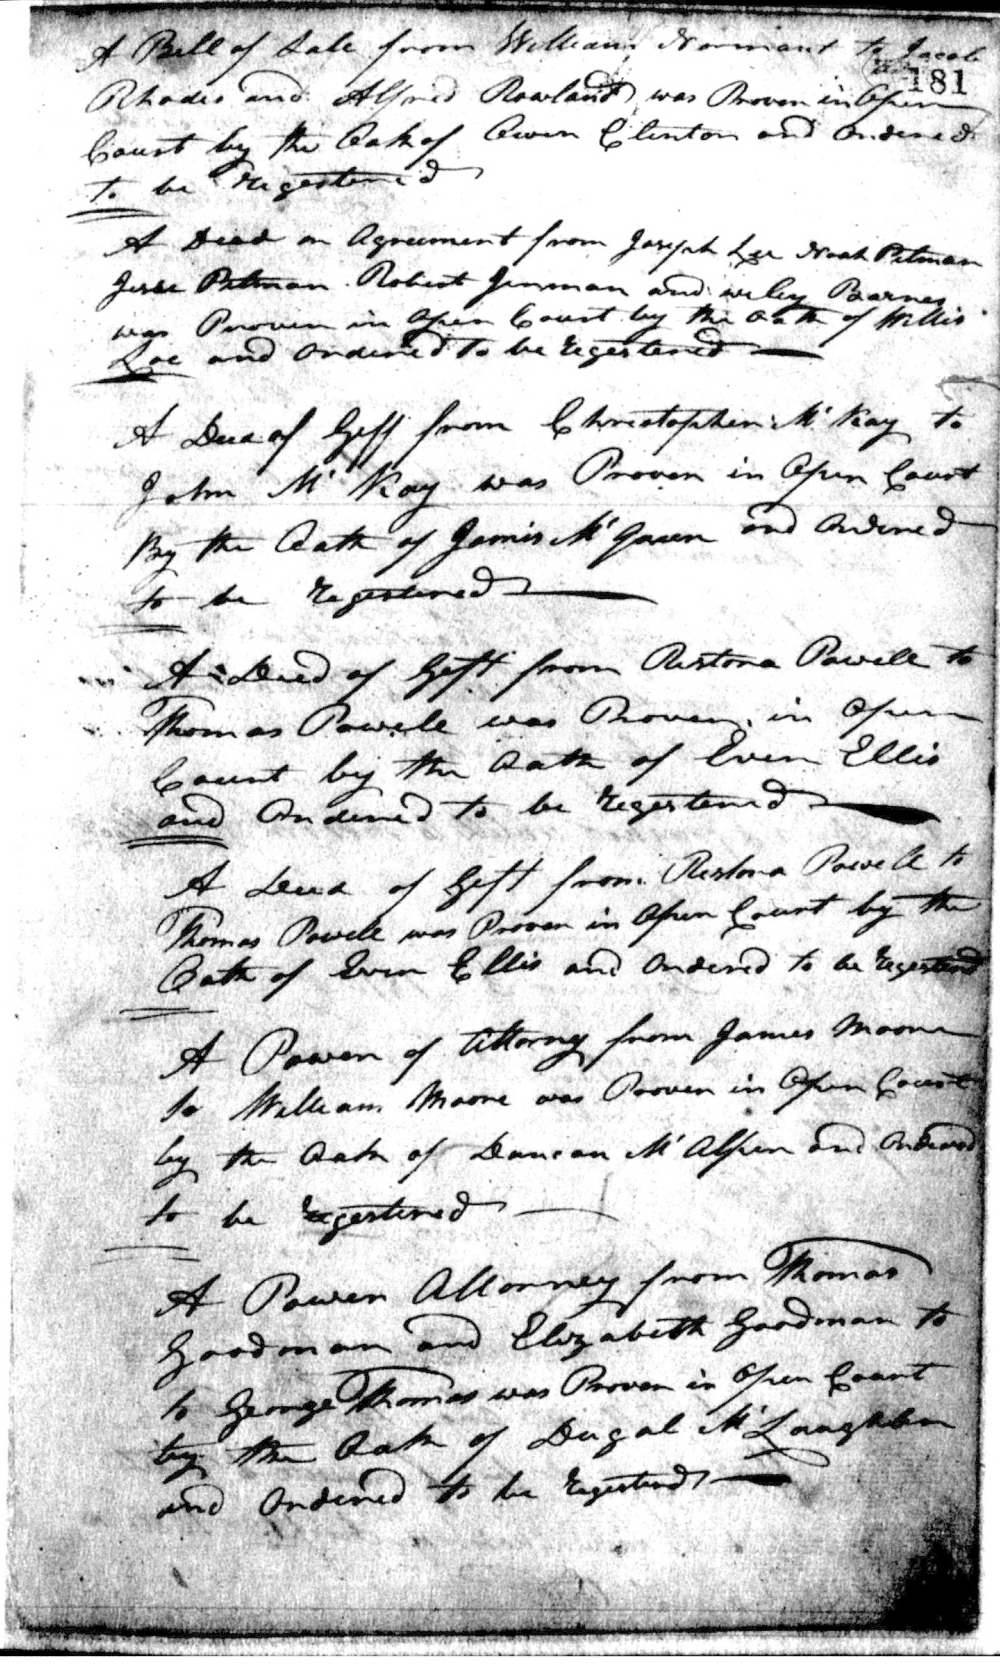 A Bill of Sale from William Normant to Jacob
181
Rhodes and Alfred Rowland was Proven in Open
Court by the Oath of Owen Clinton and Ordered
to be Regestered
A Deed on Agreement from Joseph Lee Noah Pitman
Jesse Pittman Robert Inman and wiley Barnes
was Proven in Open Court by the Oath of Willis
Lee and Ordered to be regestered
A Deed of Geff from Christopher McKay to
John McKay was Proven in Open Court
By the Oath of James McQueen and Ordered
to be Regestered
A Deed of Geft from Restona Powell to
Thomas Powell was Proven in Open
Court by the Oath of Even Ellis
and Ordered to be regestered
A Deed of Geft from Restona Powell to
Thomas Powell was Proven in Open Court by the
Oath of Even Ellis and Ordered to be regestered
A Power of Attorny from James Moore
to William Moore was Proven in Open Court
by the Oath of Duncan McAlpin and Ordered
to be regestered
A Power Attorney from Thomas
Goodman and Elizabeth Goodman to
to George Thomas was Proven in Open Court
by the Oath of Dugal McLaughlin
and Ordered to be regesterd